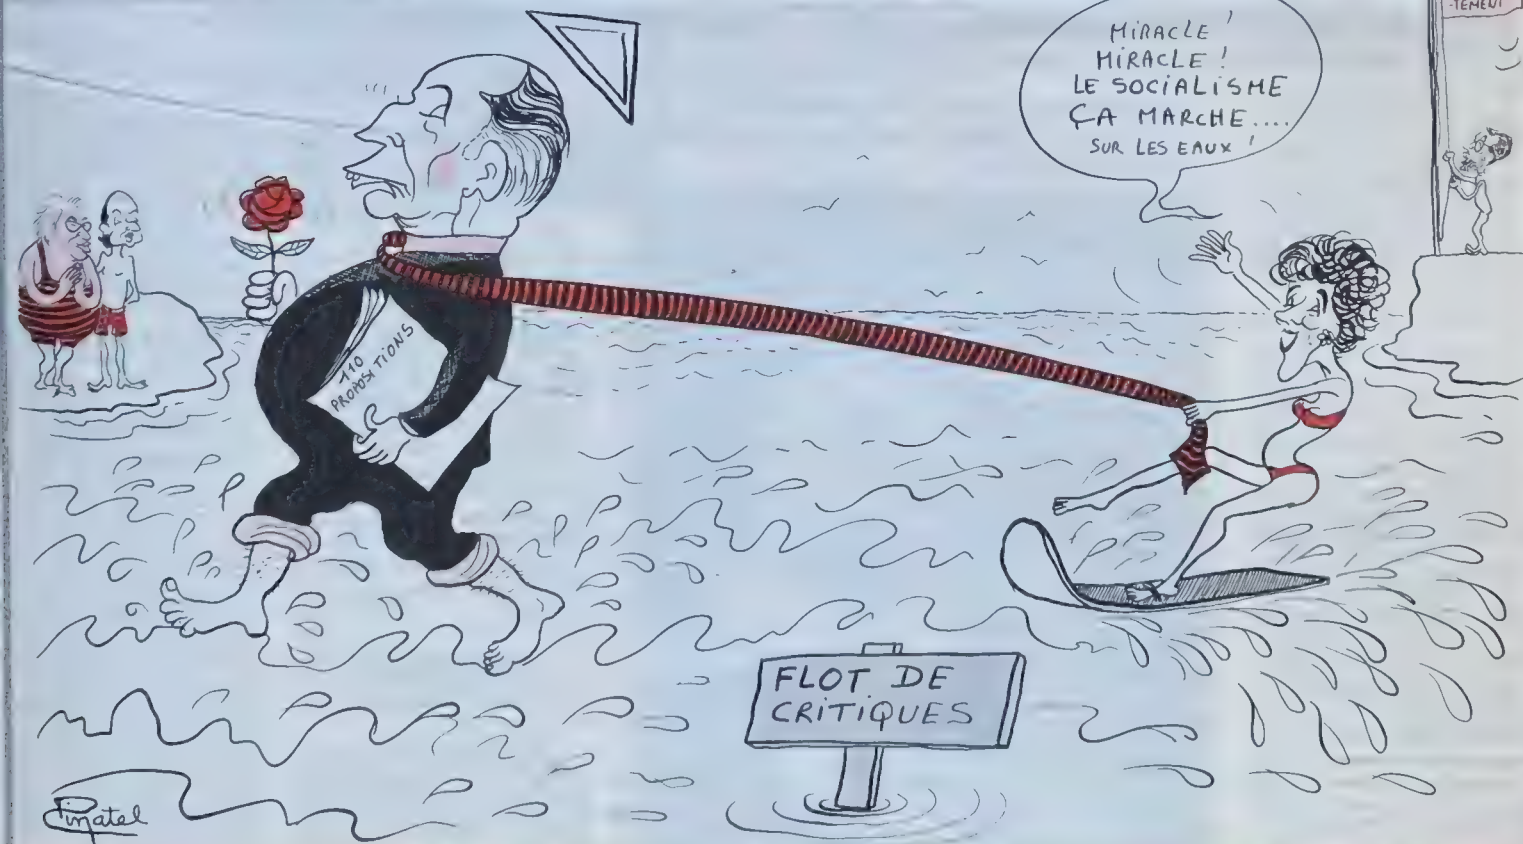 -TEMENT
MIRACLE !
MIRACLE !
LE SOCIALISME
ÇA MARCHE....
SUR LES EAUX !
110
PROPOSITIONS
FLOT DE
CRITIQUES
Pinatel